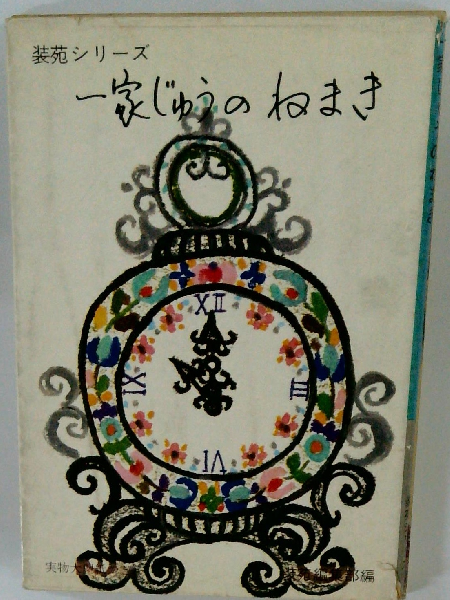 装苑シリーズ
一家じゅうのねまき
XII
IX
III
VI
実物大
部編